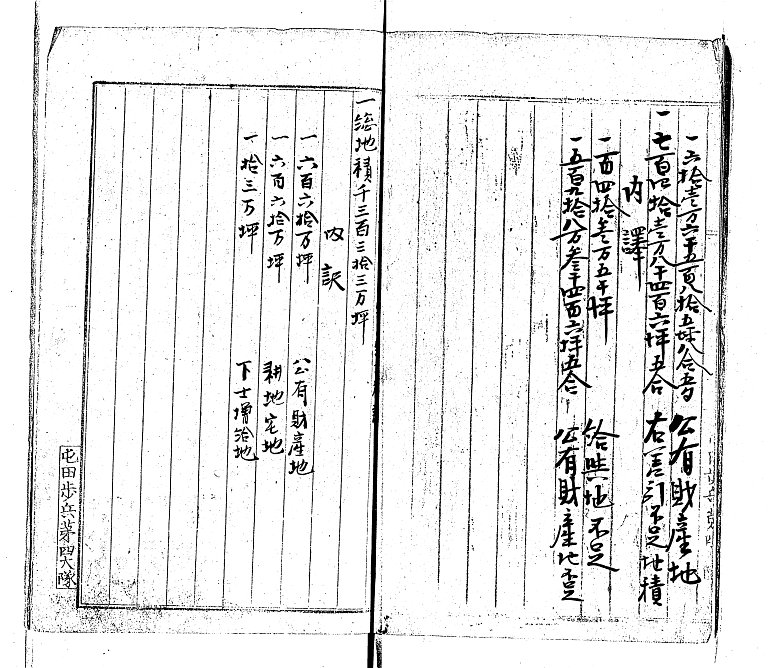 一六拾壱万六千五百八拾五坪八合五勺 公有財産地
一七百四拾壱万八千四百六坪五合 右差引不足地積
内譯
一百四拾参万五千坪 給与地不足
一五百九拾八万参千四百六坪五合 公有財産地不足
一總地積千三百三拾三万坪
内訳
一六百六拾万坪 公有財産地
一六百六拾万坪 耕地宅地
一拾三万坪 下士増給地
屯田歩兵第四大隊